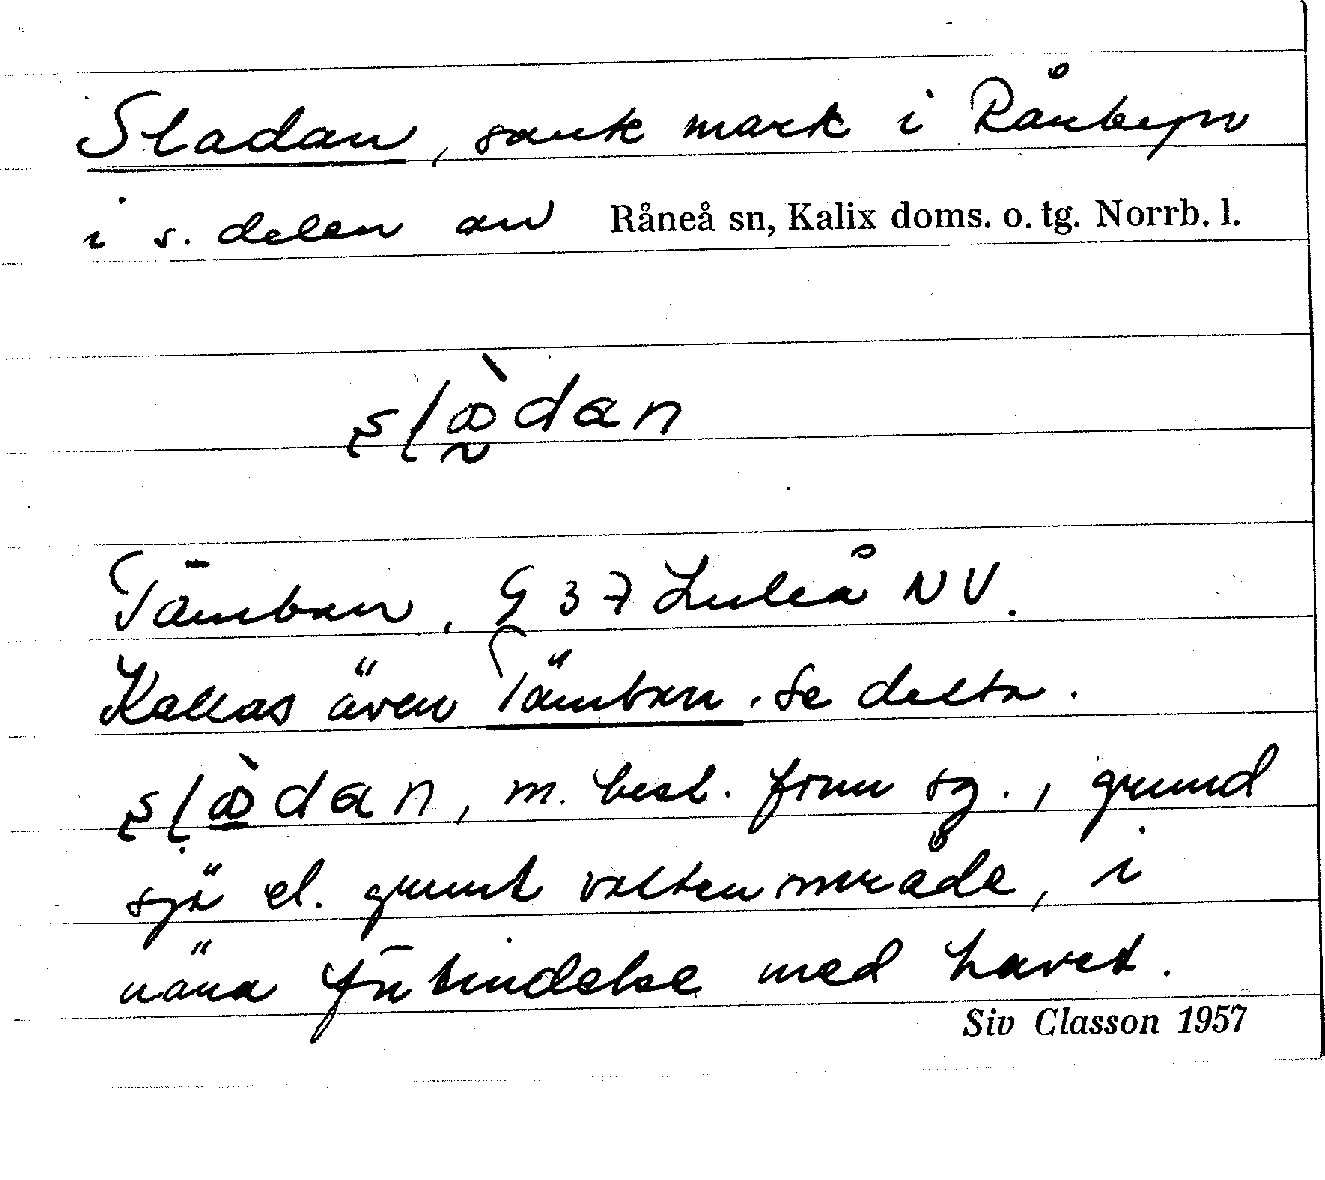 Sladan, sank mark i Rånbyn
i s. delen av Råneå sn, Kalix doms. o. tg. Norrb. l.
slàdan
Tämban, G 37 Luleå NV.
Kallas även Tämban. Se detta.
slàdan, m. best. form sg., grund
sjö el. grunt vattenområde, i
nära förbindelse med havet.
Siv Classon 1957